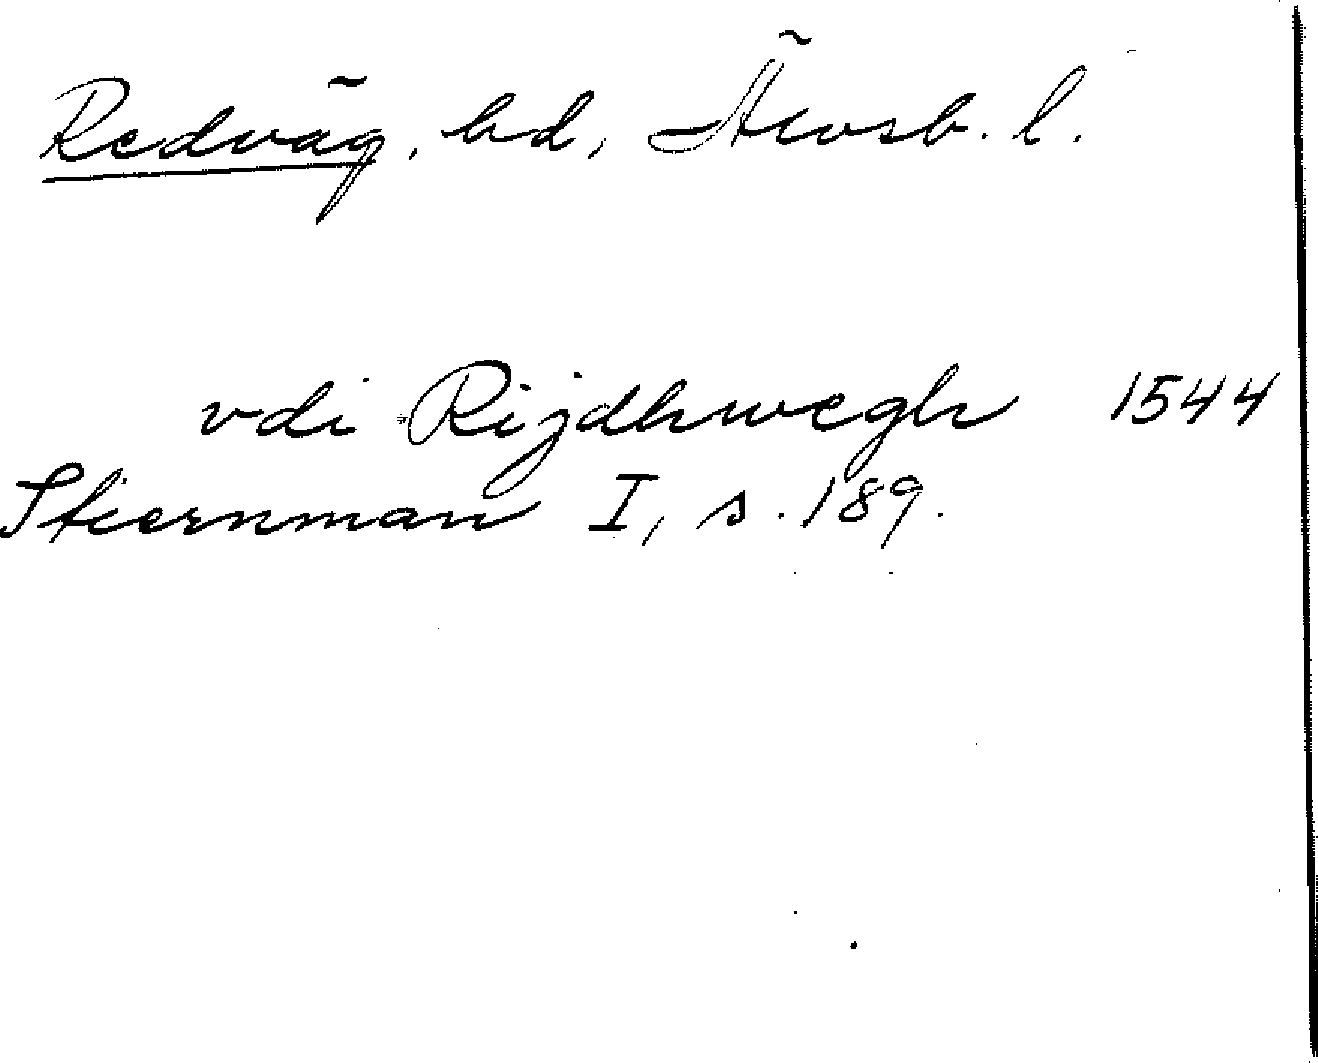 Redväg, hd, Älvsb. l.
vdi Rijdhwegh 1544
Stiernman I, s. 189.